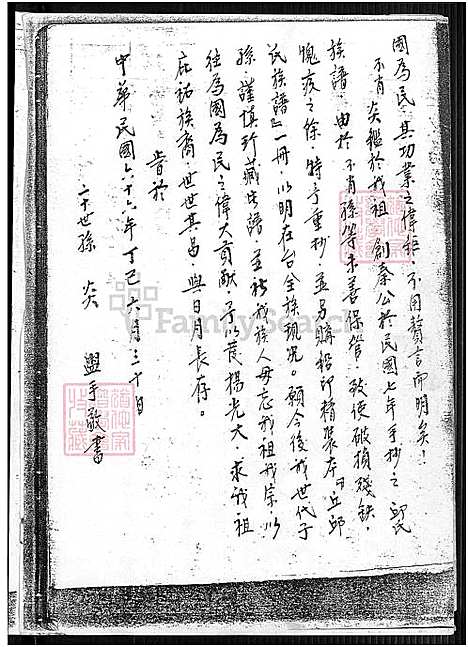 國為民，其功業之偉鉅，不用贅言而明矣！
不肖炎鑑於我祖創秦公於民國七年手抄之邱氏
族譜，由於不肖孫等未善保管，致使破損殘缺，
愧疚之餘，特予重抄，並另購鉛印精裝本『丘邱
氏族譜』一冊，以明在台全族現況。願今後我世代子
孫謹慎珍藏此譜，並祈我族人毋忘我祖我宗以
往為國為民之偉大貢献，予以發揚光大，求我祖
庇祐族裔，世世其昌，與日月長存。
旹於
中華民國六十六年丁巳六月三十日
二十世孫 炎 盥手敬書
FamilySearch